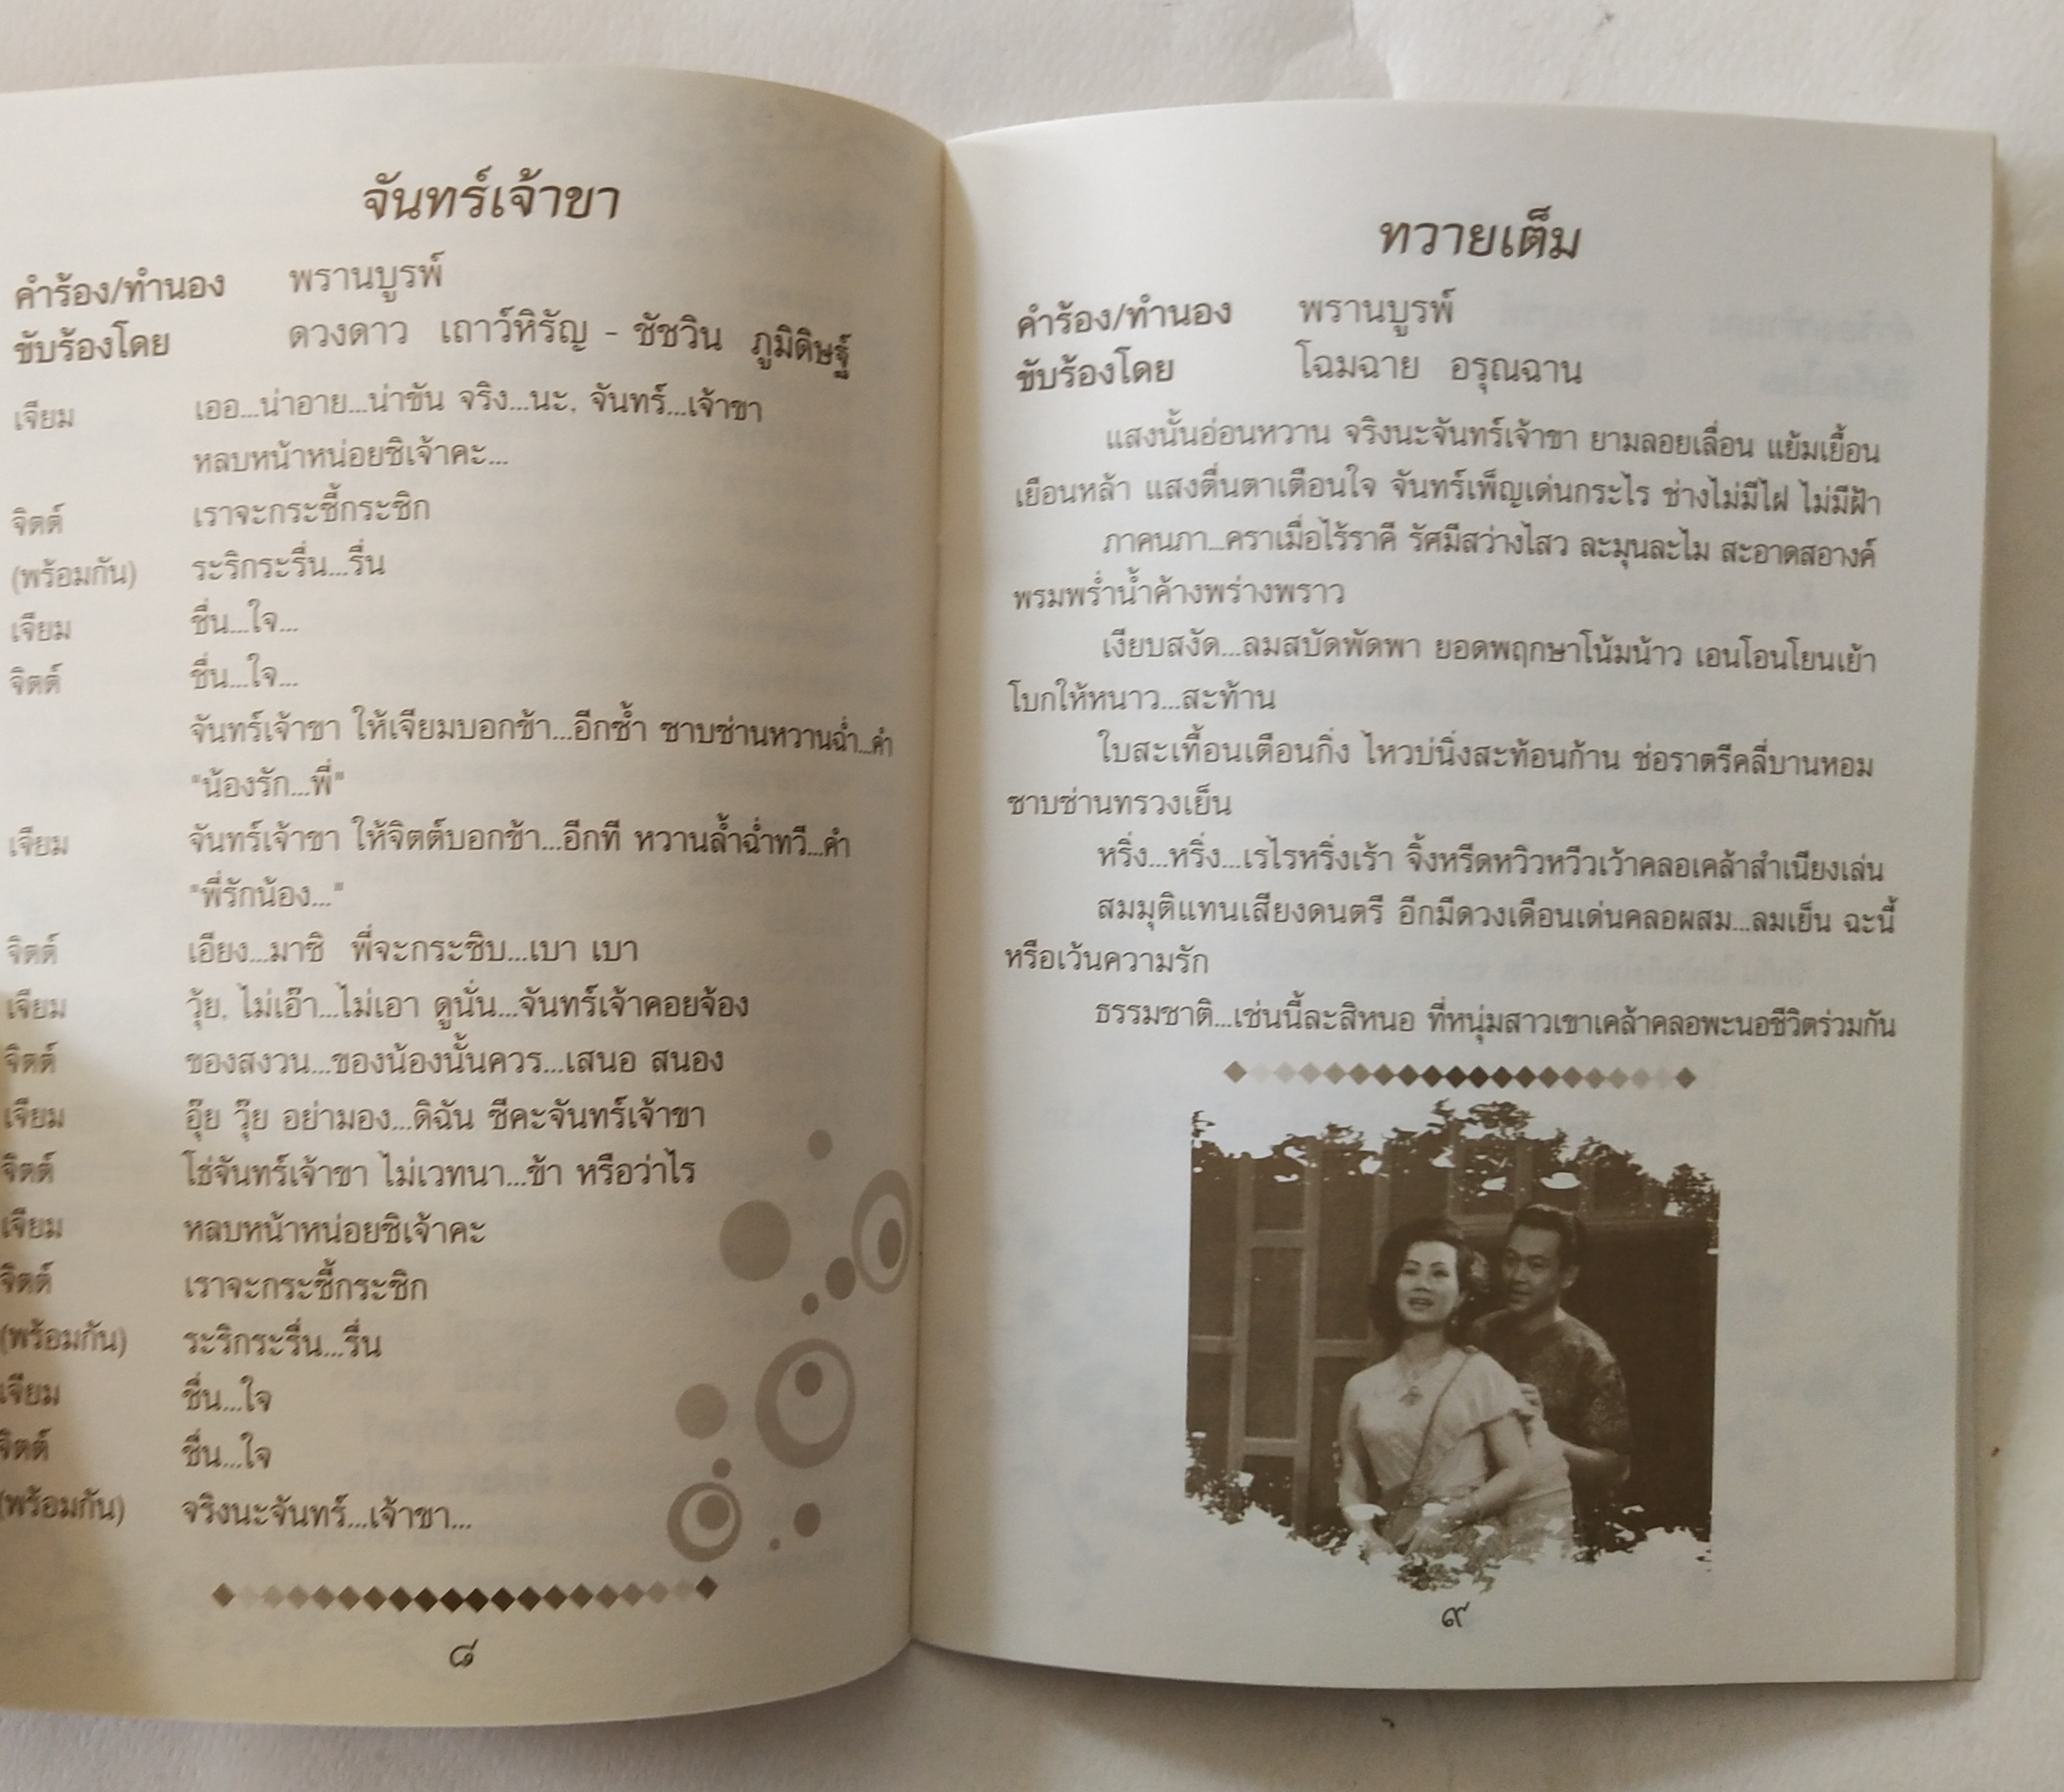 จันทร์เจ้าขา
คำร้อง/ทำนอง พรานบูรพ์
ขับร้องโดย ดวงดาว เถาว์หิรัญ - ชัชวิน ภูมิดิษฐ์
เจียม เออ...น่าอาย...น่าขัน จริง...นะ, จันทร์...เจ้าขา
หลบหน้าหน่อยซิเจ้าคะ...
จิตต์ เราจะกระซี้กระซิก
(พร้อมกัน) ระริกระรื่น...รื่น
เจียม ชื่น...ใจ...
จิตต์ ชื่น...ใจ...
จันทร์เจ้าขา ให้เจียมบอกข้า...อีกซ้ำ ซาบซ่านหวานฉ่ำ...คำ
"น้องรัก...พี่"
เจียม จันทร์เจ้าขา ให้จิตต์บอกข้า...อีกที หวานล้ำฉ่ำทวี...คำ
"พี่รักน้อง..."
จิตต์ เอียง...มาซิ พี่จะกระซิบ...เบา เบา
เจียม วุ้ย, ไม่เอ๊า...ไม่เอา ดูนั่น...จันทร์เจ้าคอยจ้อง
จิตต์ ของสงวน...ของน้องนั้นควร...เสนอ สนอง
เจียม อุ๊ย วุ๊ย อย่ามอง...ดิฉัน ซีคะจันทร์เจ้าขา
จิตต์ โธ่จันทร์เจ้าขา ไม่เวทนา...ข้า หรือว่าไร
เจียม หลบหน้าหน่อยซิเจ้าคะ
จิตต์ เราจะกระซี้กระซิก
(พร้อมกัน) ระริกระรื่น...รื่น
เจียม ชื่น...ใจ
จิตต์ ชื่น...ใจ
(พร้อมกัน) จริงนะจันทร์...เจ้าขา...
๘
ทวายเต็ม
คำร้อง/ทำนอง พรานบูรพ์
ขับร้องโดย โฉมฉาย อรุณฉาน
แสงนั้นอ่อนหวาน จริงนะจันทร์เจ้าขา ยามลอยเลื่อน แย้มเยื้อน
เยือนหล้า แสงตื่นตาเตือนใจ จันทร์เพ็ญเด่นกระไร ช่างไม่มีไฝ ไม่มีฝ้า
ภาคนภา...คราเมื่อไร้ราคี รัศมีสว่างไสว ละมุนละไม สะอาดสอางค์
พรมพร่ำน้ำค้างพร่างพราว
เงียบสงัด...ลมสบัดพัดพา ยอดพฤกษาโน้มน้าว เอนโอนโยนเย้า
โบกให้หนาว...สะท้าน
ใบสะเทื้อนเตือนกิ่ง ไหวบ่นิ่งสะท้อนก้าน ช่อราตรีคลี่บานหอม
ซาบซ่านทรวงเย็น
หริ่ง...หริ่ง...เรไรหริ่งเร้า จิ้งหรีดหวิวหวีวเว้าคลอเคล้าสำเนียงเล่น
สมมุติแทนเสียงดนตรี อีกมีดวงเดือนเด่นคลอผสม...ลมเย็น ฉะนี้
หรือเว้นความรัก
ธรรมชาติ...เช่นนี้ละสิหนอ ที่หนุ่มสาวเขาเคล้าคลอพะนอชีวิตร่วมกัน
๙